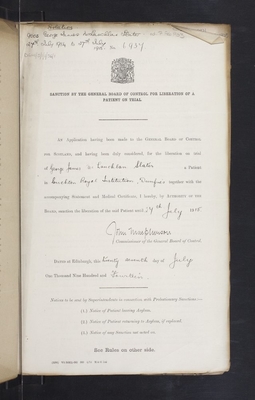 George James
27th July 1914 to 27th July
1915. No 6937
SANCTION BY THE GENERAL BOARD OF CONTROL FOR LIBERATION OF A
PATIENT ON TRIAL
An Application having been made to the GENERAL BOARD OF CONTROL
FOR SCOTLAND, and having been duly considered, for the liberation on trial
of George James Slater a Patient
in Crichton Royal Institution, Dumfries together with the
accompanying Statement and Medical Certificate, I hereby, by AUTHORITY OF THE
BOARD, sanction the liberation of the said Patient until 27th July 1915.
Commissioner of the General Board of Control.
DATED at Edinburgh, this twenty seventh day of July
One Thousand Nine Hundred and Fourteen.
Notices to be sent by Superintendents in connection with Probationary Liberations:—
(1.) Notice of Patient leaving Asylum.
(2.) Notice of Patient returning to Asylum, if replaced.
(3.) Notice of any Sanction not acted on.
See Rules on other side.